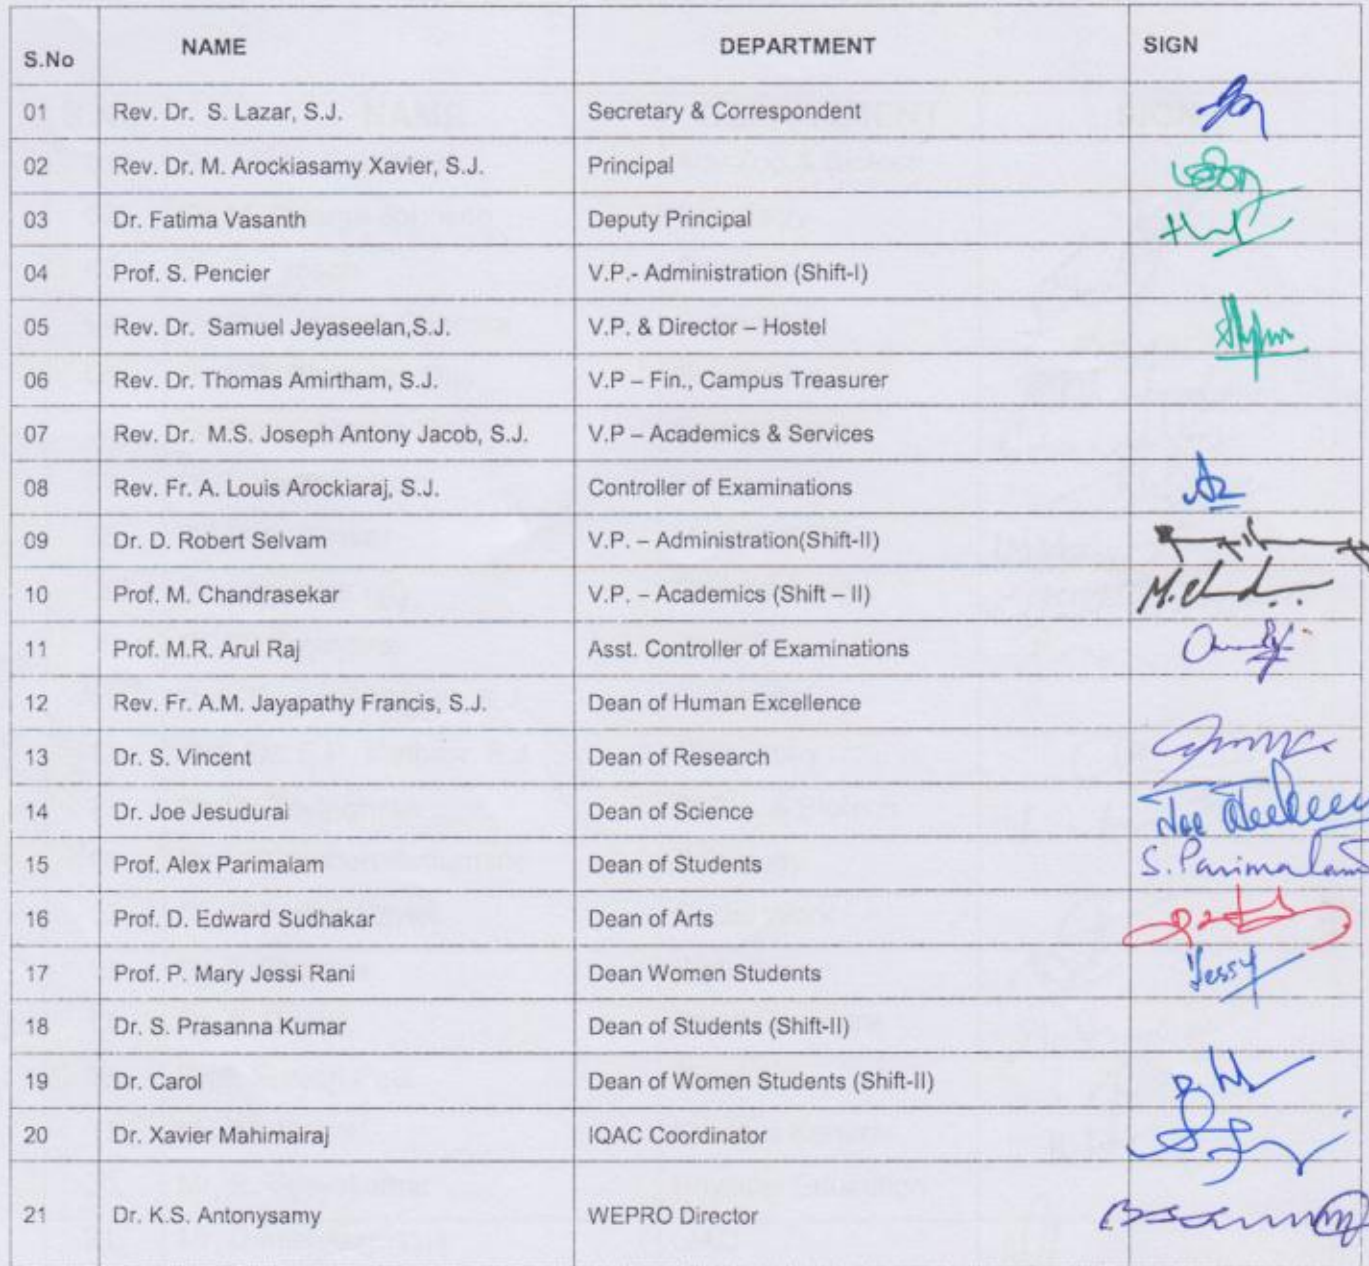 S.No NAME DEPARTMENT SIGN
01 Rev. Dr. S. Lazar, S.J. Secretary & Correspondent
02 Rev. Dr. M. Arockiasamy Xavier, S.J. Principal
03 Dr. Fatima Vasanth Deputy Principal
04 Prof. S. Pencier V.P.- Administration (Shift-I)
05 Rev. Dr. Samuel Jeyaseelan,S.J. V.P. & Director – Hostel
06 Rev. Dr. Thomas Amirtham, S.J. V.P – Fin., Campus Treasurer
07 Rev. Dr. M.S. Joseph Antony Jacob, S.J. V.P – Academics & Services
08 Rev. Fr. A. Louis Arockiaraj, S.J. Controller of Examinations
09 Dr. D. Robert Selvam V.P. – Administration(Shift-II)
10 Prof. M. Chandrasekar V.P. – Academics (Shift – II)
11 Prof. M.R. Arul Raj Asst. Controller of Examinations
12 Rev. Fr. A.M. Jayapathy Francis, S.J. Dean of Human Excellence
13 Dr. S. Vincent Dean of Research
14 Dr. Joe Jesudurai Dean of Science
15 Prof. Alex Parimalam Dean of Students S. Parimalam
16 Prof. D. Edward Sudhakar Dean of Arts
17 Prof. P. Mary Jessi Rani Dean Women Students Jessy
18 Dr. S. Prasanna Kumar Dean of Students (Shift-II)
19 Dr. Carol Dean of Women Students (Shift-II)
20 Dr. Xavier Mahimairaj IQAC Coordinator
21 Dr. K.S. Antonysamy WEPRO Director